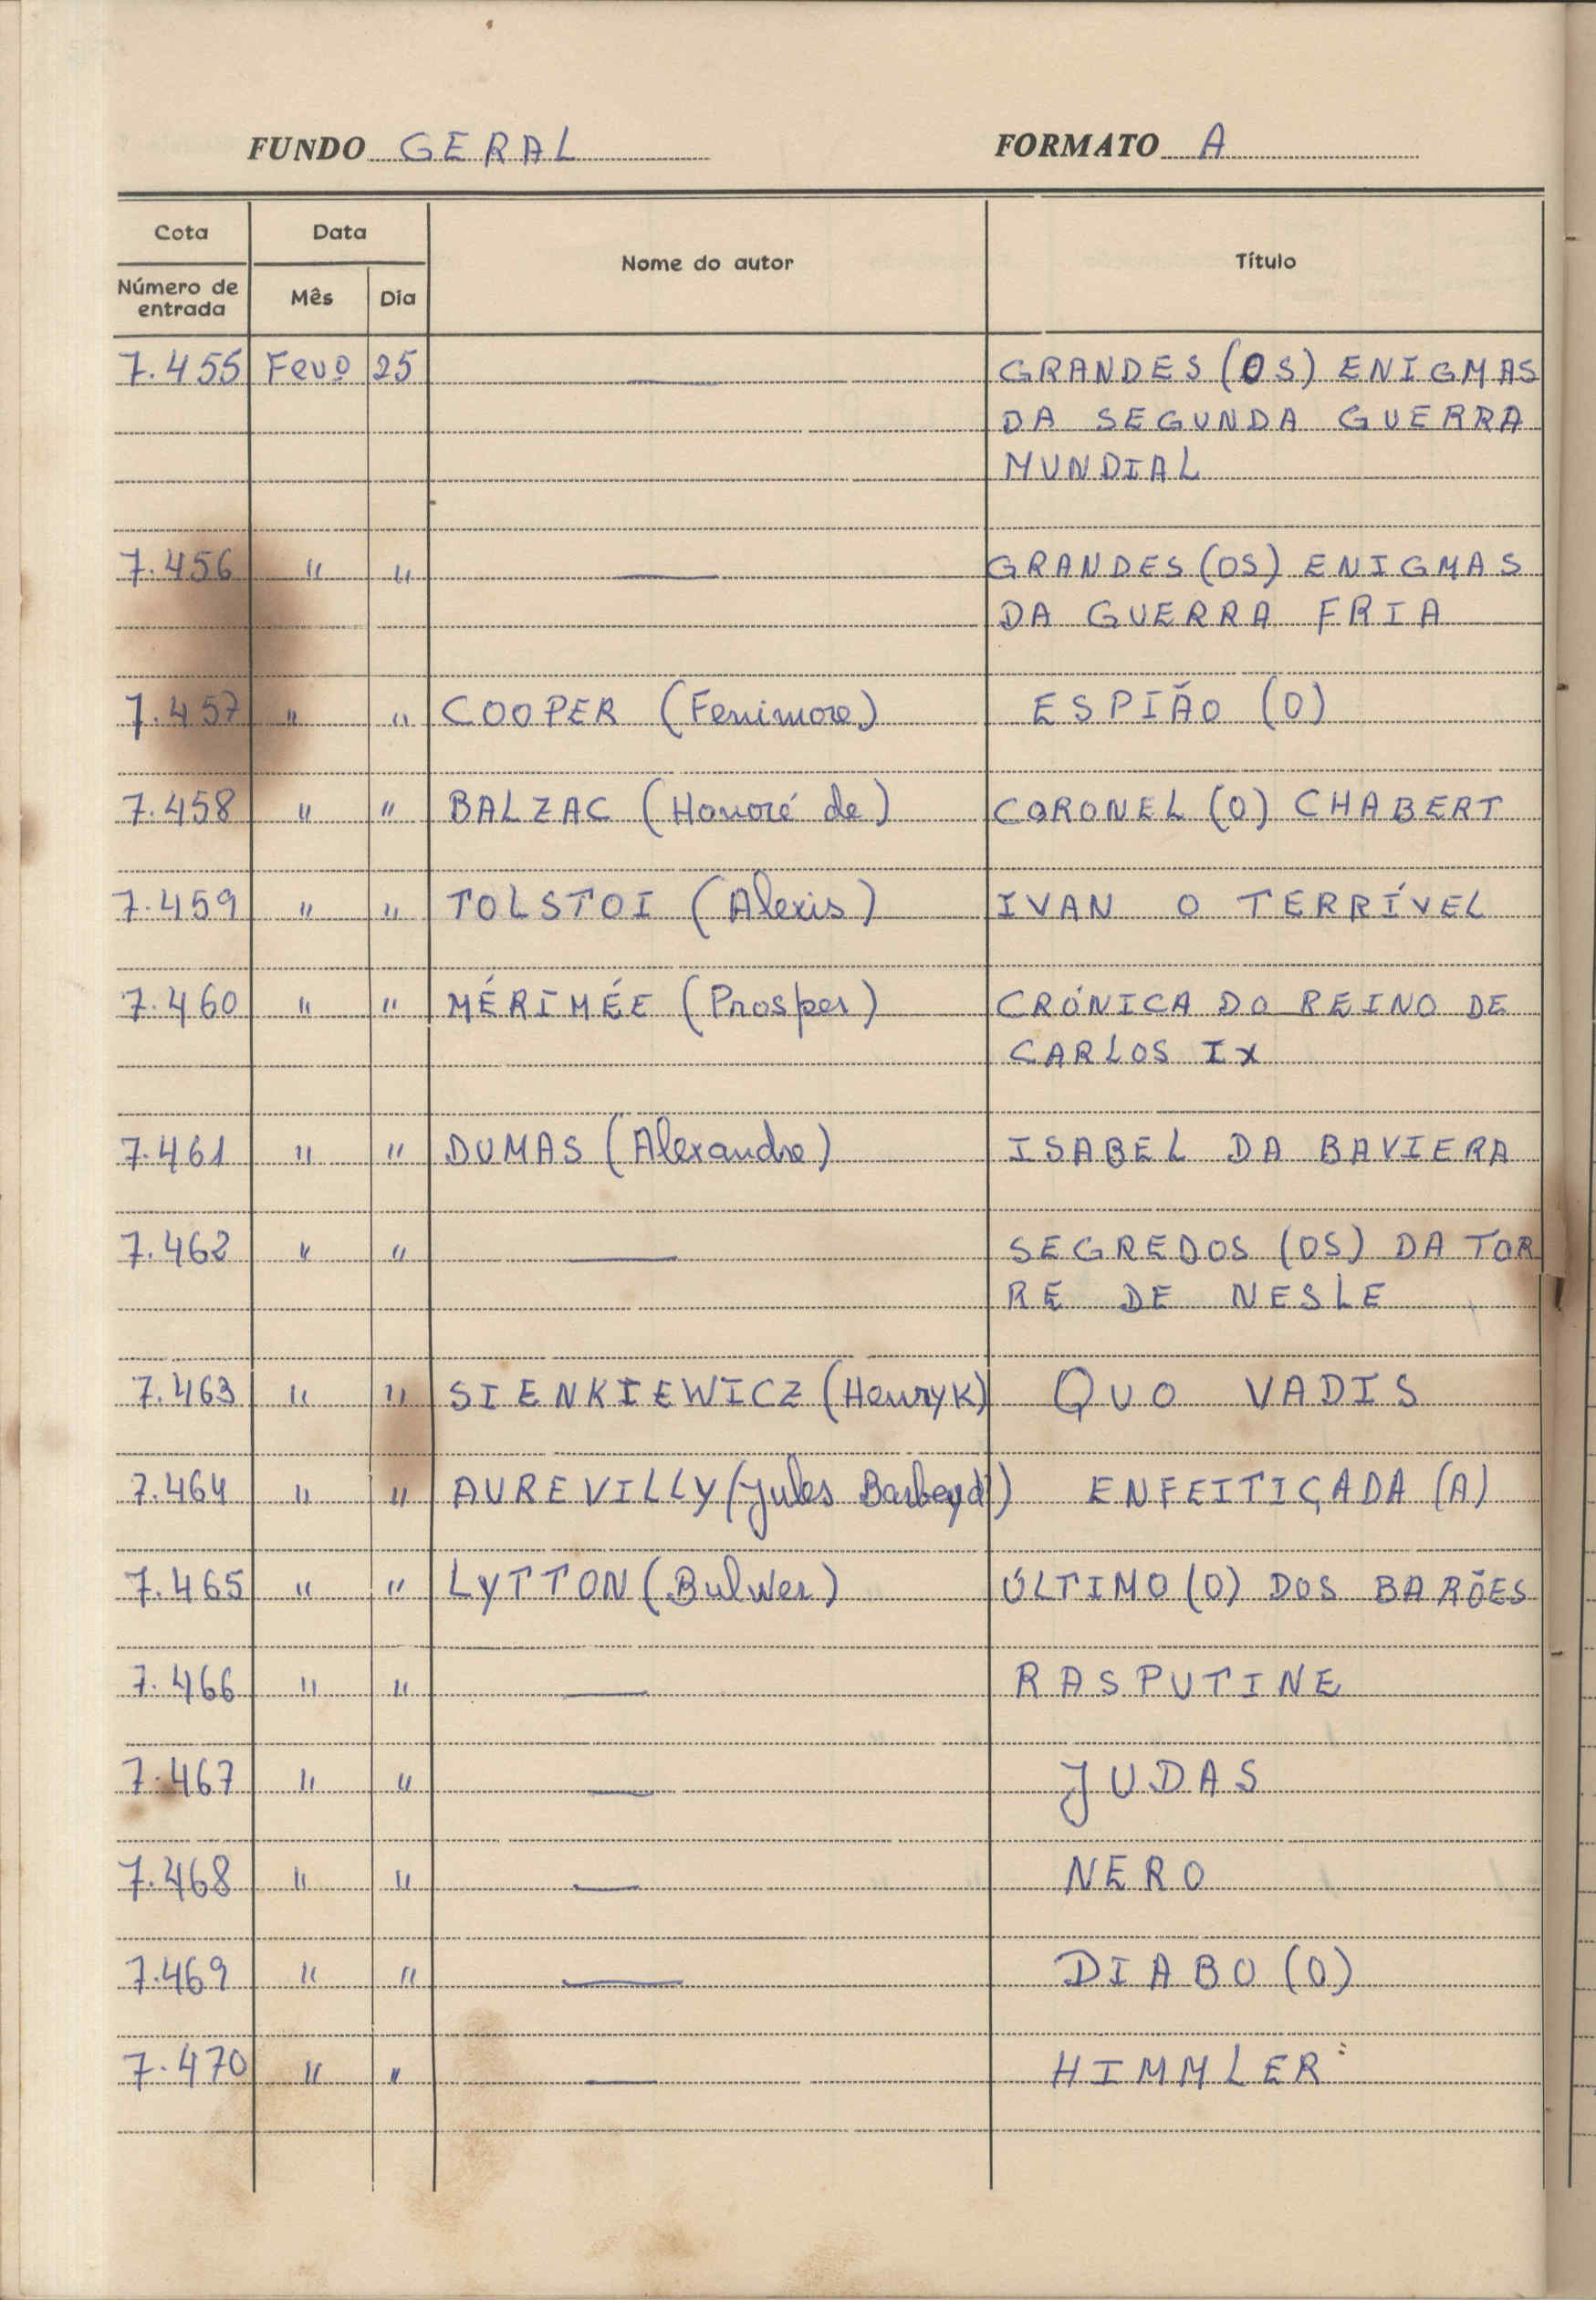 FUNDO GERAL FORMATO A
Cota Data Nome do autor Título
Número de entrada Mês Dia
7.455 Fevº 25 — GRANDES (OS) ENIGMAS
DA SEGUNDA GUERRA
MUNDIAL
7.456 " " — GRANDES (OS) ENIGMAS
DA GUERRA FRIA
7.457 " " COOPER (Fenimore) ESPIÃO (O)
7.458 " " BALZAC (Honoré de) CORONEL (O) CHABERT
7.459 " " TOLSTOI (Alexis) IVAN O TERRÍVEL
7.460 " " MÉRIMÉE (Prosper) CRÓNICA DO REINO DE
CARLOS IX
7.461 " " DUMAS (Alexandre) ISABEL DA BAVIERA
7.462 " " — SEGREDOS (OS) DA TOR
RE DE NESLE
7.463 " " SIENKIEWICZ (Henryk) QUO VADIS
7.464 " " AUREVILLY (Jules Barbeyd') ENFEITIÇADA (A)
7.465 " " LYTTON (Bulwer) ÚLTIMO (O) DOS BARÕES
7.466 " " — RASPUTINE
7.467 " " — JUDAS
7.468 " " — NERO
7.469 " " — DIABO (O)
7.470 " " — HIMMLER